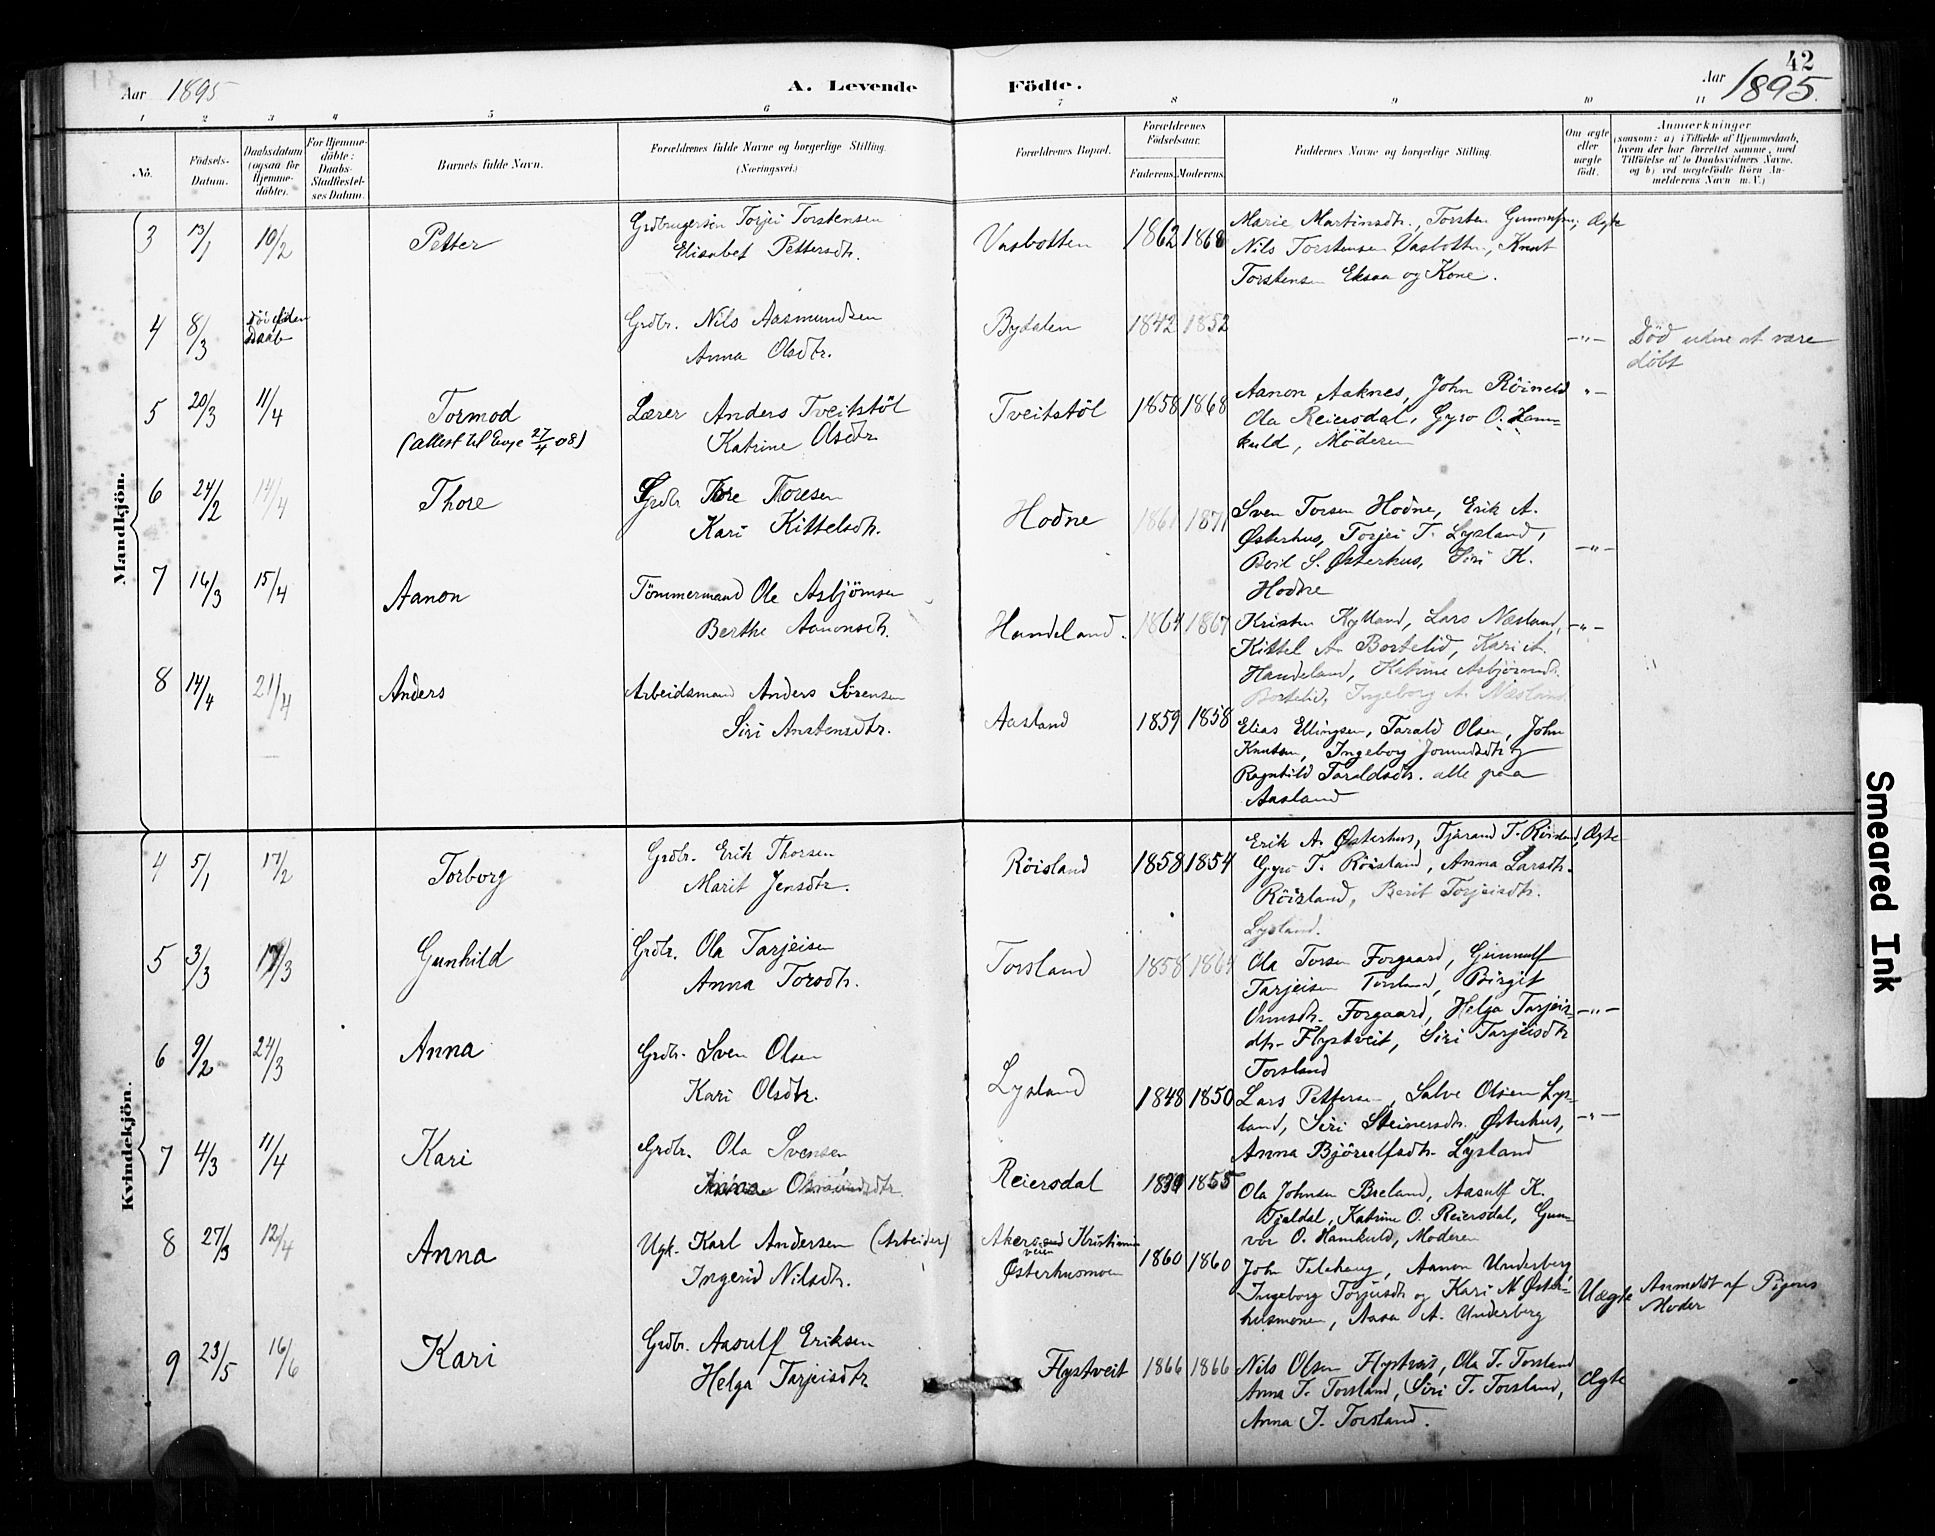 42
Aar 1895
A. Levende Födte.
Aar 1895.
1 2 3 4 5 6 7 8 9 10 11
No.
Födsels-
Datum.
Daabsdatum
(ogsaa for
Hjemme-
döbte).
For Hjemme-
döbte:
Daabs-
Stadfæstel-
ses Datum.
Barnets fulde Navn.
Forældrenes fulde Navne og borgerlige Stilling.
(Næringsvei.)
Forældrenes Bopæl.
Forældrenes
Födselsaar.
Faderens. Moderens.
Faddernes Navne og borgerlige Stilling.
Om ægte
eller
uægte
födt.
Anmærkninger
(saasom: a) i Tilfælde af Hjemmedaab,
hvem der har forrettet samme, med
Tilföielse af to Daabsvidners Navne,
og b) ved uægtefödte Börn An-
melderens Navn m. V.)
Mandkjön.
3 13/1 10/2 Petter
Grdbrugersön Torjei Torstensen
Elisabet Pettersdtr.
Vasbotten 1862 1868
Marie Martinsdtr., Torsten Gunnufsen,
Nils Torstensen Vasbotten, Knut
Torstensen Eksaa og Kone.
Ægte
4 8/3
Daab
Grdbr. Nils Aasmundsen
Anna Olsdtr.
Bydalen 1842 1852
—"—
Död uden at være
döbt
5 20/3 11/4 Tormod
(attest til Evje 27/4 08)
Lærer Anders Tveitstöl
Katrine Olsdtr.
Tveitstöl 1858 1868
Aanon Aaknes, John Röinelid
Ola Reiersdal, Gyro O. Ham-
kuld, Möderen
"—
6 24/2 14/4 Thore
Grdbr Tore Toresen
Kari Kittelsdtr.
Hodne 1861 1871
Sven Torsen Hodne, Erik A.
Østerhus, Torjei T. Lysland,
Beril S. Østerhus, Siri K.
Hodne
—"—
7 16/3 15/4 Aanon
Tömmermand Ole Asbjörnsen
Berthe Aanonsdtr.
Handeland. 1864 1867
Kristen Kylland, Lars Næsland,
Kittel A. Bortelid, Kari A.
Handeland, Katrine Asbjörnsd.
Bortelid, Ingeborg A. Næsland
—"—
8 14/4 21/4 Anders
Arbeidsmand Anders Sörensen
Siri Anstensdtr.
Aasland 1859 1858
Elias Ellingsen, Tarald Olsen, John
Knutsen, Ingeborg Jorundsdtr og
Ragnhild Taraldsdtr. alle paa
Aasland
Kvindekjön.
4 5/1 17/2 Torborg
Grdbr. Erik Thorsen
Marit Jensdtr.
Röisland 1858 1854
Erik A. Østerhus, Tjöraand T. Röisland,
Gyro T. Röisland, Anna Larsdtr.
Röisland, Berit Torjeisdtr.
Lysland.
Ægte
5 3/3 17/3 Gunhild
Grdbr. Ola Tarjeisen
Anna Torsdtr.
Torsland 1858 1864
Ola Torsen Forgaard, Gunnulf
Tarjeisen Torsland, Birgit
Ormsdtr. Forgaard, Helga Tarjeis-
dtr. Flystveit, Siri Tarjeisdtr
Torsland
—"—
6 9/2 24/3 Anna
Grdbr. Sven Olsen
Kari Olsdtr.
Lysland 1848 1850
Lars Pettersen, Salve Olsen Lys-
land, Siri Steinersdtr. Østerhus,
Anna Björnulfsdtr. Lysland
—"—
7 4/3 11/4 Kari
Grdbr. Ola Svensen
Reiersdal 1855
Ola Johnsen Breland, Aasulf K.
Tjaldal, Katrine O. Reiersdal, Gun-
vor O. Hamkuld, Moderen
8 27/3 12/4 Anna
Ugk. Karl Andersen (Arbeider)
Ingerid Nilsdtr.
Østerhusmoen 1860 1860
John Telehaug, Aanon Underberg,
Ingeborg Torjusdtr og Kari N. Øster-
husmonen, Aasa A. Underberg
Uægte
Anmeldt af Pigens
Moder
9 23/5 16/6 Kari
Grdbr. Aasulf Eriksen
Helga Tarjeisdtr
Flystveit 1866 1866
Nils Olsen Flystveit, Ola T. Torsland
Anna T. Torsland, Siri T. Torsland,
Anna J. Torsland.
Ægte
Smeared Ink